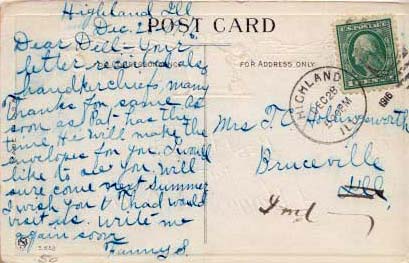 Highland Ill
Dec. 2
Dear Dell - Your
letter rec. also
handkerchief, many
Thanks for same. as
soon as Pat has the
time, He will make the
envelopes for you. I would
like to see you, Will
sure come next Summer
I wish you & Thad would
visit us. Write me
again soon
Fanny S.
POST CARD
FOR ADDRESS ONLY
HIGHLAND
DEC 28
PM
1916
ILL
Mrs T. C. Hollingsworth
Bruceville
Ill.
Ind
50